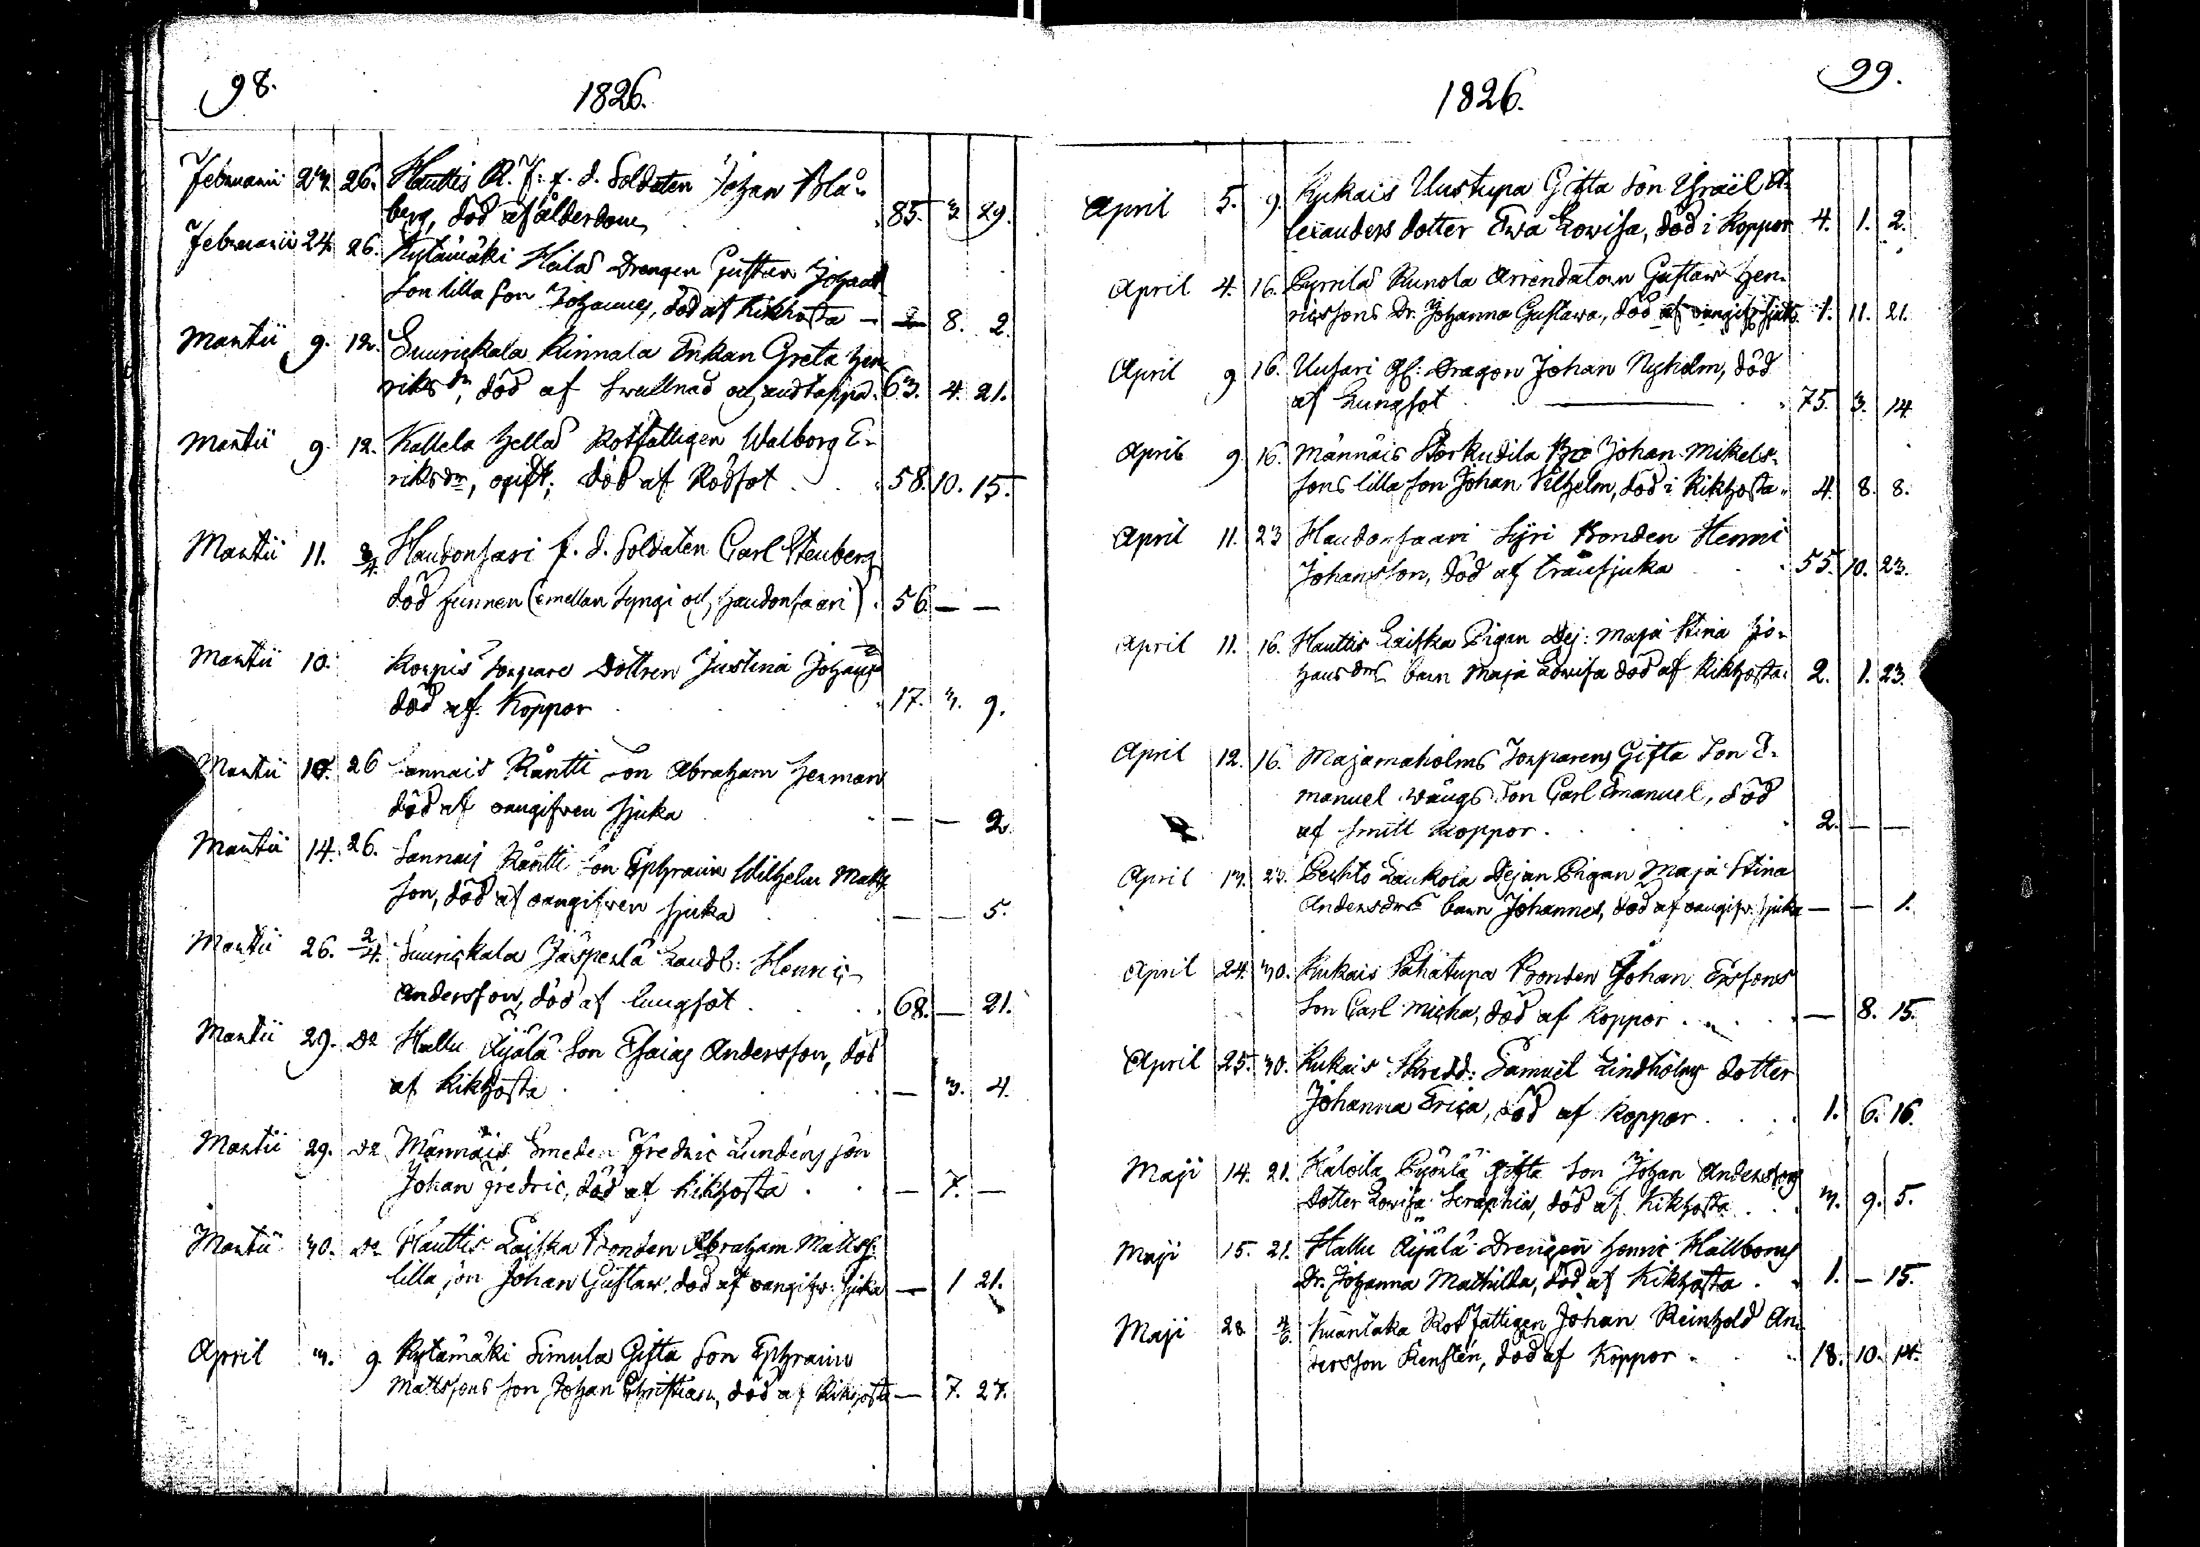 98.
1826.
Februarii 23. 26. Hauttis R. H: f. d. Soldaten Johan Blå-
berg, död af ålderdom 85. 3. 29.
Februarii 24. 26. Kytämäki Heilas Drengen Gustav Johans
son lilla son Johannes, död af Kikhosta — 2 8. 2.
Martii 9. 12. Suurickala Rinnala Enkan Greta Hen
riks dr, död af Swullnad och andtäppa. 63. 4. 21.
Martii 9. 12. Kallela Hellas Rotfattigen Walborg E-
riksdr, ogift; död af Rödsot 58. 10. 15.
Martii 11. 2/4. Haudonsari f. d. Soldaten Carl Stenberg
död funnen (emellan Syngi och Haudonsaari) 56 — —
Martii 10. Korpis Torpare Dottren Justina Johans
död af Koppor 17. 3. 9.
Martii 10. 26 Sannais Råntti son Abraham Herman
död af oangifven sjuka — — 2.
Martii 14. 26. Sannais Råntti son Ephraim Wilhelm Matts
son, död af oangifven sjuka — — 5.
Martii 26. 2/4. Suurickala Jäsperlä Landb: Henric
Andersson, död af lungsot 68. — 21.
Martii 29. Do Hallu Äijälä son Esaias Andersson, död
af Kikhosta — 3. 4.
Martii 29. Do Männäis Smeden Fredric Lundens son
Johan Fredric, död af Kikhosta — 7. —
Martii 30. Do Hauttis Laiska Bonden Abraham Mattss:
lilla son Johan Gustaw, död af oangifw: sjuka — 1 21.
April 3. 9. Kytämäki Simula Gifta son Ephraim
Mattssons son Johan Christian, död af Kikhosta — 7. 27.
99.
1826.
April 5. 9. Kukais Uustupa Gifta son Israël A-
lexanders dotter Ewa Lowisa, död i Koppor 4. 1. 2.
April 4. 16. Pyrrilä Runola Arrendatorn Gustaw Hen-
ricssons Dr. Johanna Gustawa, död af oangifw: sjuka 1. 11. 21.
April 9 16. Uusari Gl: Dragon Johan Nyholm, död
af Lungsot 75. 3. 14
April 9. 16. Männäis Storkudila Bo Johan Mikels-
sons lilla son Johan Vilhelm, död i Kikhosta 4. 8. 8.
April 11. 23 Haudonsaari Syri Bonden Henric
Johansson, död af tränsjuka 55. 10. 23.
April 11. 16. Hauttis Laiska Pigan Dej: Maja Stina Jo-
hans drs barn Maja Lowisa död af Kikhosta 2. 1. 23.
April 12. 16. Majamaholms Torparens Gifta son E-
manuel Wängs son Carl Emanuel, död
af smitt koppor 2. — —
April 13. 23. Pechto Laukola Dejan Pigan Maja Stina
Anders drs barn Johannes, död af oangifw. sjuka — — 1.
April 24. 30. Kukais Pahatupa Bonden Johan Erssons
son Carl Micha, död af Koppor — 8. 15.
April 25. 30. Kukais Skredd: Samuel Lindholms dotter
Johanna Erica, död af Koppor 1. 6. 16.
Maji 14. 21. Haloila Pyörlä gifta son Johan Anderssons
dotter Lovisa Seraphia, död af Kikhosta 3. 9. 5.
Maji 15. 21. Hallu Äijälä Drengen Henric Hallborgs
Dr. Johanna Mathilda, död af Kikhosta 1. — 15.
Maji 28 4/6. Rotfattigen Johan Reinhold An-
dersson Renstén, död af Koppor 18. 10. 14.